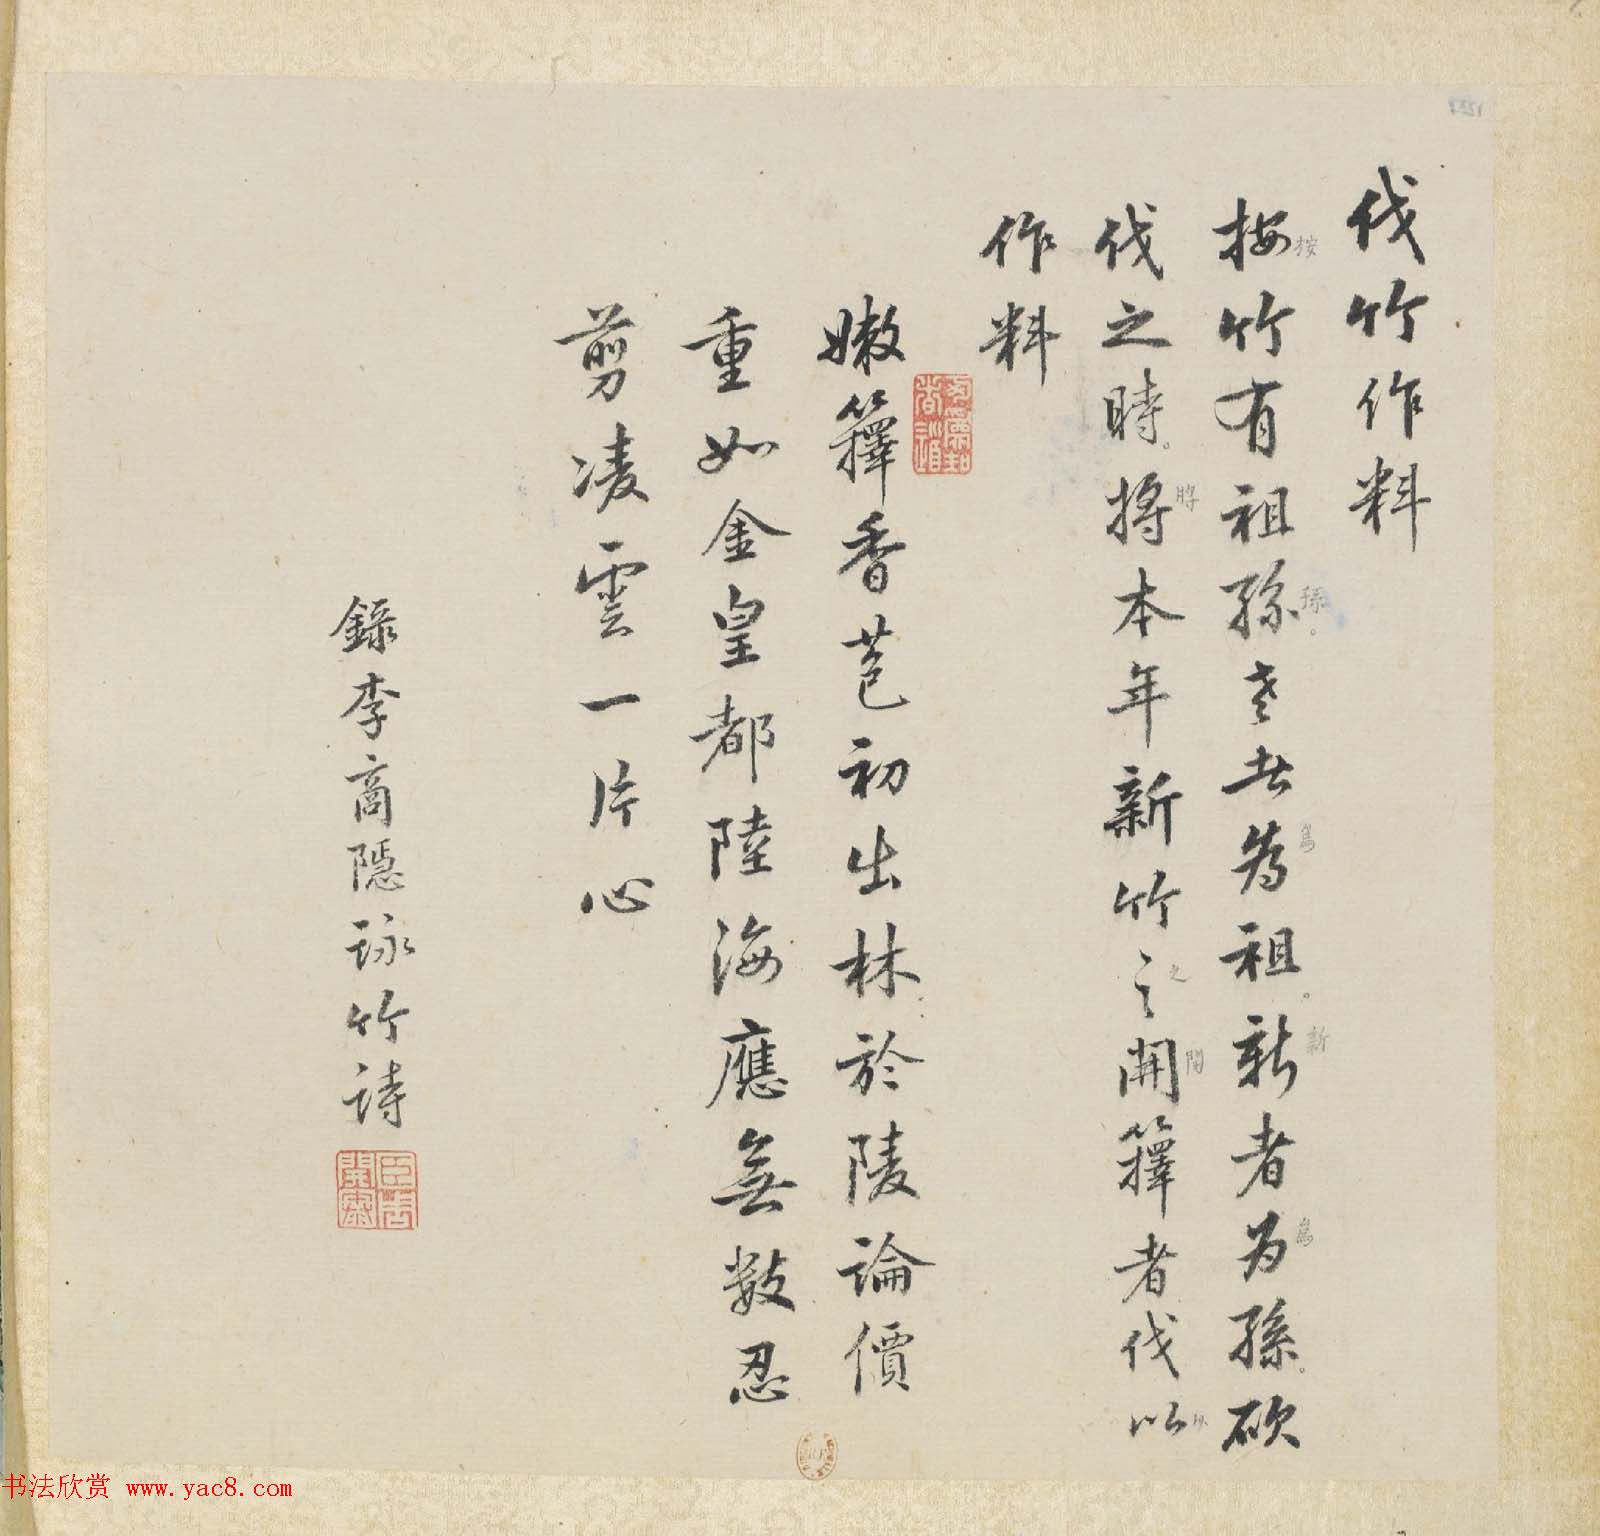 伐竹作料
按竹有祖孫老者為祖。新者为孫。砍
伐之時。將本年新竹之開籜者伐以
作料
嫩籜香苞初出林於陵論價
重如金皇都陸海應無數忍
剪凌雲一片心
錄李商隱詠竹诗
书法欣赏 www.yac8.com